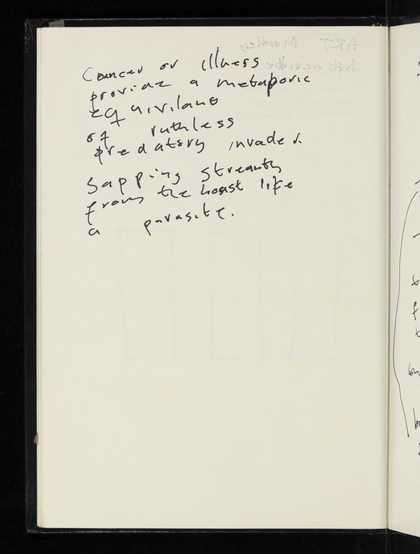 Cancer or illness
provide a metaporic
equivilant
of ruthless
predatory invader
sapping streanth
from the hoast life
a parasite.